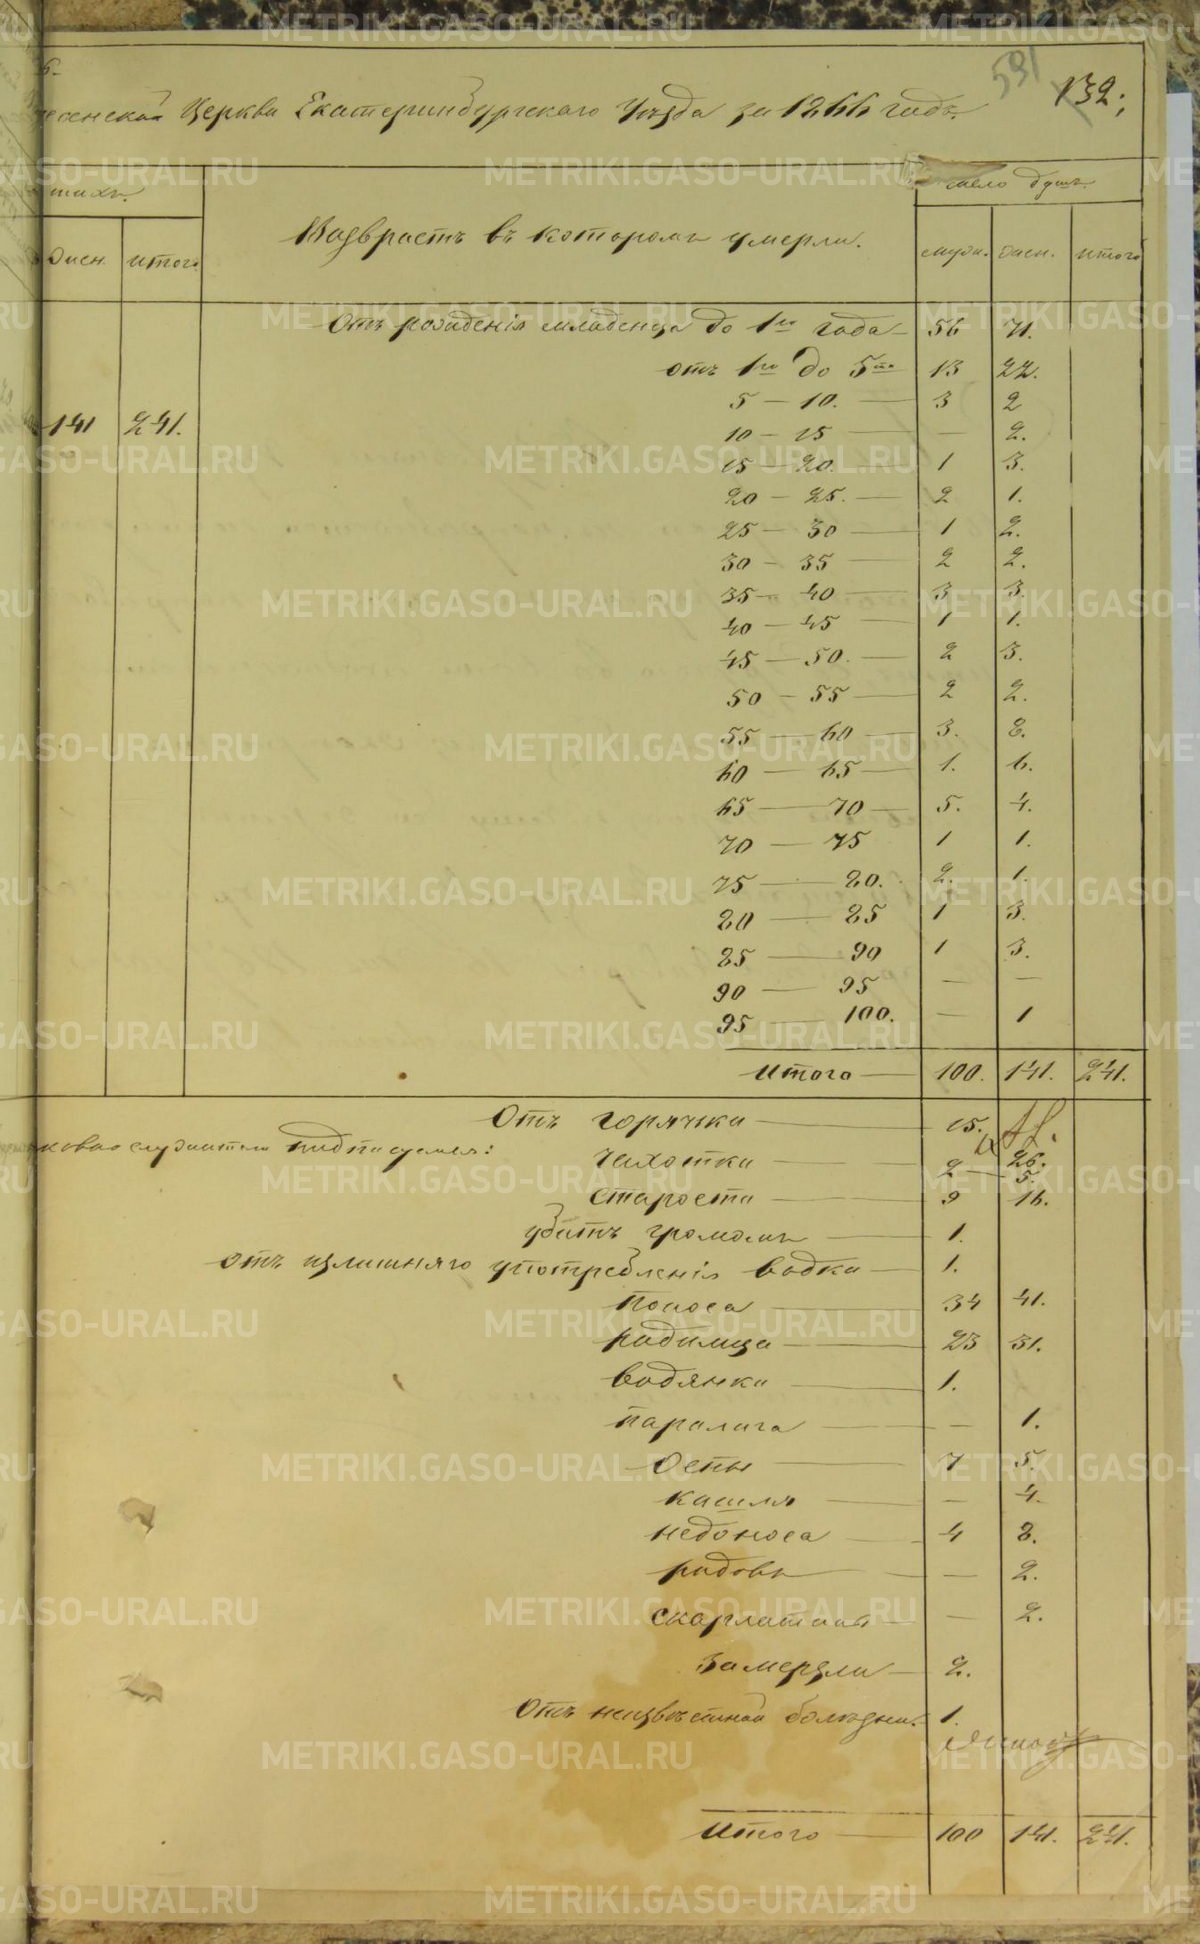 591
132.
Церкви Екатеринбургскаго Уѣзда за 1866 годъ.
число душъ.
женс. итого
Возврастъ въ которомъ умерли.
муж. женс. итого
Отъ рожденія младенца до 1го года — 56 71.
отъ 1го до 5ти 13 22.
5 — 10. — 3 2
141 241.
10 — 15 — — 2.
15 — 20. — 1 3.
20 — 25. — 2 1.
25 — 30 — 1 2.
30 — 35 — 2 2.
35 — 40 — 3 3.
40 — 45 — 1 1.
45 — 50. — 2 3.
50 — 55 — 2 2.
55 — 60 — 3. 8.
60 — 65 — 1. 6.
65 — 70 — 5. 4.
70 — 75 1 1.
75 — 80. 2. 1.
80 — 85 1 3.
85 — 90 1 3.
90 — 95 — —
95 — 100. — 1
Итого — 100. 141. 241.
Отъ горячки — 15.
подписуемся:
чахотки — 2 — 26. 5.
старости — 9 16.
убитъ громомъ — 1.
отъ излишняго употребленія водки — 1.
поноса — 34 41.
родимца — 23 31.
водянки — 1.
паралича — — 1.
оспы — 7 5.
кашля — — 4.
недоноса — 4 8.
родовъ — — 2.
скарлатины — — 2.
замерзли — 2.
Отъ неизвѣстной болѣзни. 1.
Итого — 100 141. 241.
METRIKI.GASO-URAL.RU